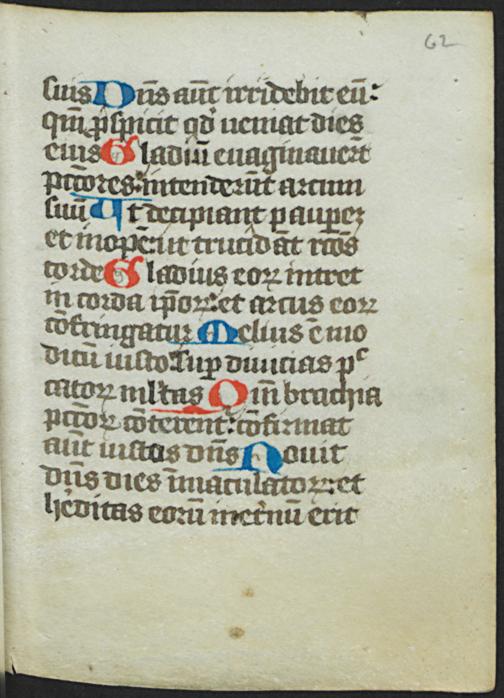 62
suis Dn̄s aut̄ irridebit eū:
qm̄ ꝓspicit qd̄ ueniat dies
eius Gladiū euaginauer̄t
pctōres: intenderūt arcum
suū Ut decipiant pauperē
et inopē: ut trucidāt rc̄os
corde Gladius eoꝝ intret
in corda ip̄oꝝ: et arcus eoꝝ
cōfringatur Melius ē mo
dicū iusto: sup̄ diuicias pc
catoꝝ ml̄tas Qm̄ brachia
pctōꝝ cōterent̄: cōfirmat
aut̄ iustos dn̄s Nouit
dn̄s dies īmaculatoꝝ: et
he᷒ditas eorū inet̄nū erit